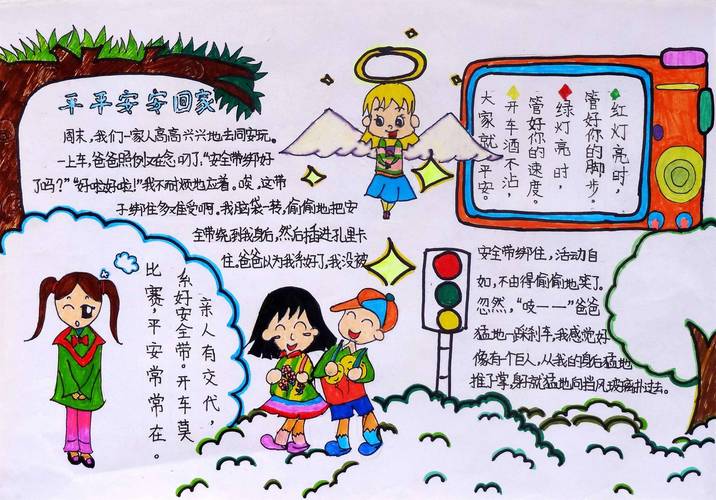 平平安安回家
周末，我们一家人高高兴兴地去同安玩。
一上车，爸爸照例又在念叨了。“安全带绑好
了吗？”“好啦好啦！”我不耐烦地应着。唉，这带
子绑住多难受啊。我脑袋一转，偷偷地把安
全带绕到我身后，然后插进孔里卡
住。爸爸以为我系好了，我没被
安全带绑住，活动自
如，不由得偷偷地笑了。
忽然，“吱——”爸爸
猛地一踩刹车，我感觉好
像有个巨人，从我的身后猛地
推了掌，身就猛地向挡风玻璃扑过去。
红灯亮时，
管好你的脚步。
绿灯亮时，
管好你的速度。
开车酒不沾，
大家就平安。
亲人有交代，
系好安全带。开车莫
比赛，平安常常在。